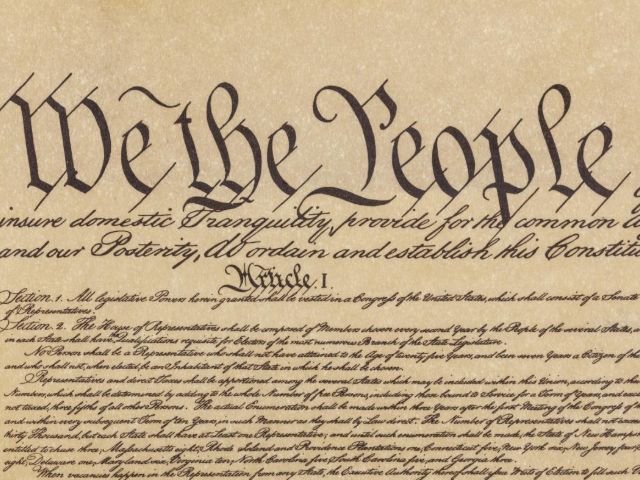 We the People
insure domestic Tranquility, provide for the common
and our Posterity, do ordain and establish this Constitu
Article. I.
Section. 1. All legislative Powers herein granted shall be vested in a Congress of the United States, which shall consist of a Senate
of Representatives.
Section. 2. The House of Representatives shall be composed of Members chosen every second Year by the People of the several States,
in each State shall have the Qualifications requisite for Electors of the most numerous Branch of the State Legislature.
No Person shall be a Representative who shall not have attained to the Age of twenty five Years, and been seven Years a Citizen of the
and who shall not, when elected, be an Inhabitant of that State in which he shall be chosen.
Representatives and direct Taxes shall be apportioned among the several States which may be included within this Union, according to the
Numbers, which shall be determined by adding to the whole Number of free Persons, including those bound to Service for a Term of Years, and
not taxed, three fifths of all other Persons. The actual Enumeration shall be made within three Years after the first Meeting of the Congress of the
and within every subsequent Term of ten Years, in such Manner as they shall by Law direct. The Number of Representatives shall not
thirty Thousand, but each State shall have at Least one Representative; and until such enumeration shall be made, the State of New Hamp
entitled to chuse three, Massachusetts eight, Rhode Island and Providence Plantations one, Connecticut five, New York six, New Jersey four
eight, Delaware one, Maryland six, Virginia ten, North Carolina five, South Carolina five, and Georgia three.
When vacancies happen in the Representation from any State, the Executive Authority thereof shall issue Writs of Election to fill such